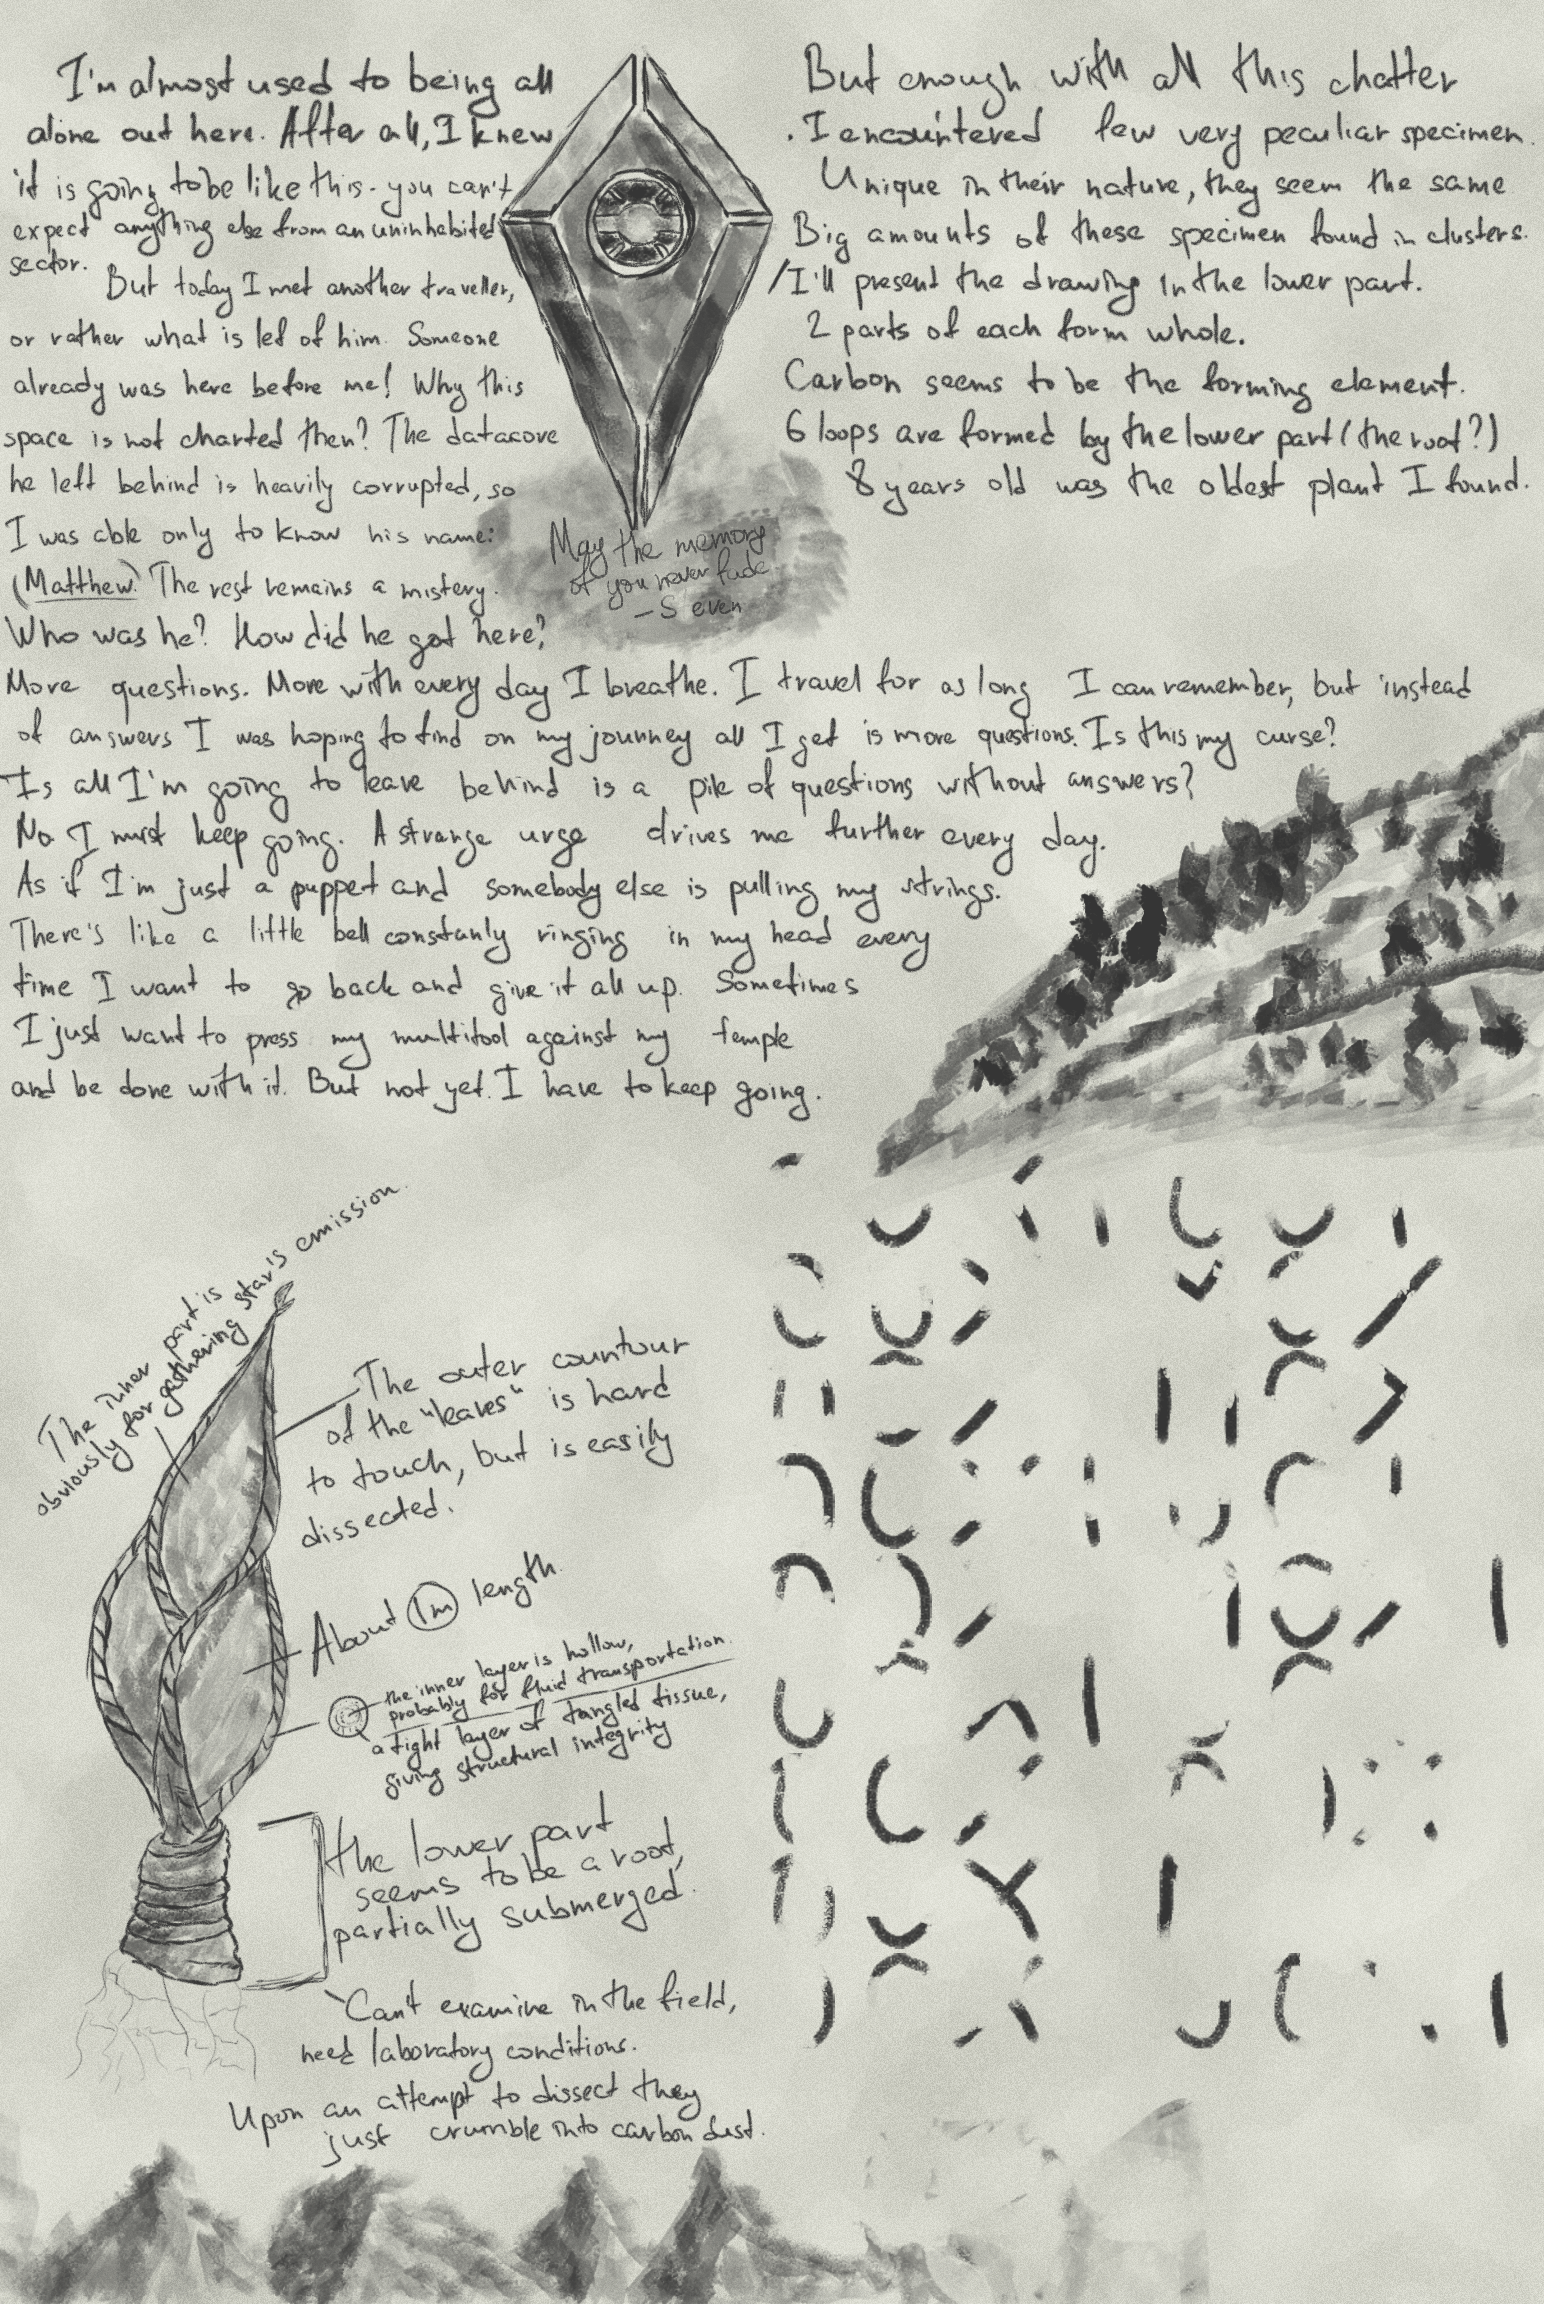 I'm almost used to being all
alone out here. After all, I knew
it is going to be like this - you can't
expect anything else from an uninhabited
sector.
But today I met another traveller,
or rather what is lef of him. Someone
already was here before me! Why this
space is not charted then? The datacore
he left behind is heavily corrupted, so
I was able only to know his name:
(Matthew.) The rest remains a mistery.
Who was he? How did he got here?
More questions. More with every day I breathe. I travel for as long I can remember, but instead
of answers I was hoping to find on my journey all I get is more questions. Is this my curse?
Is all I'm going to leave behind is a pile of questions without answers?
No. I must keep going. A strange urge drives me further every day.
As if I'm just a puppet and somebody else is pulling my strings.
There's like a little bell constanly ringing in my head every
time I want to go back and give it all up. Sometimes
I just want to press my multitool against my temple
and be done with it. But not yet. I have to keep going.
May the memory
of you never fade
- Seven
But enough with all this chatter
. I encountered few very peculiar specimen.
Unique in their nature, they seem the same
Big amounts of these specimen found in clusters.
/I'll present the drawing in the lower part.
2 parts of each form whole.
Carbon seems to be the forming element.
6 loops are formed by the lower part (the root?)
8 years old was the oldest plant I found.
The inner part is
obviously for gathering star's emission.
The outer countour
of the "leaves" is hard
to touch, but is easily
dissected.
About 1m length.
the inner layer is hollow,
probably for fluid transportation.
a tight layer of tangled tissue,
giving structural integrity
the lower part
seems to be a root,
partially submerged.
Can't examine in the field,
need laboratory conditions.
Upon an attempt to dissect they
just crumble into carbon dust.